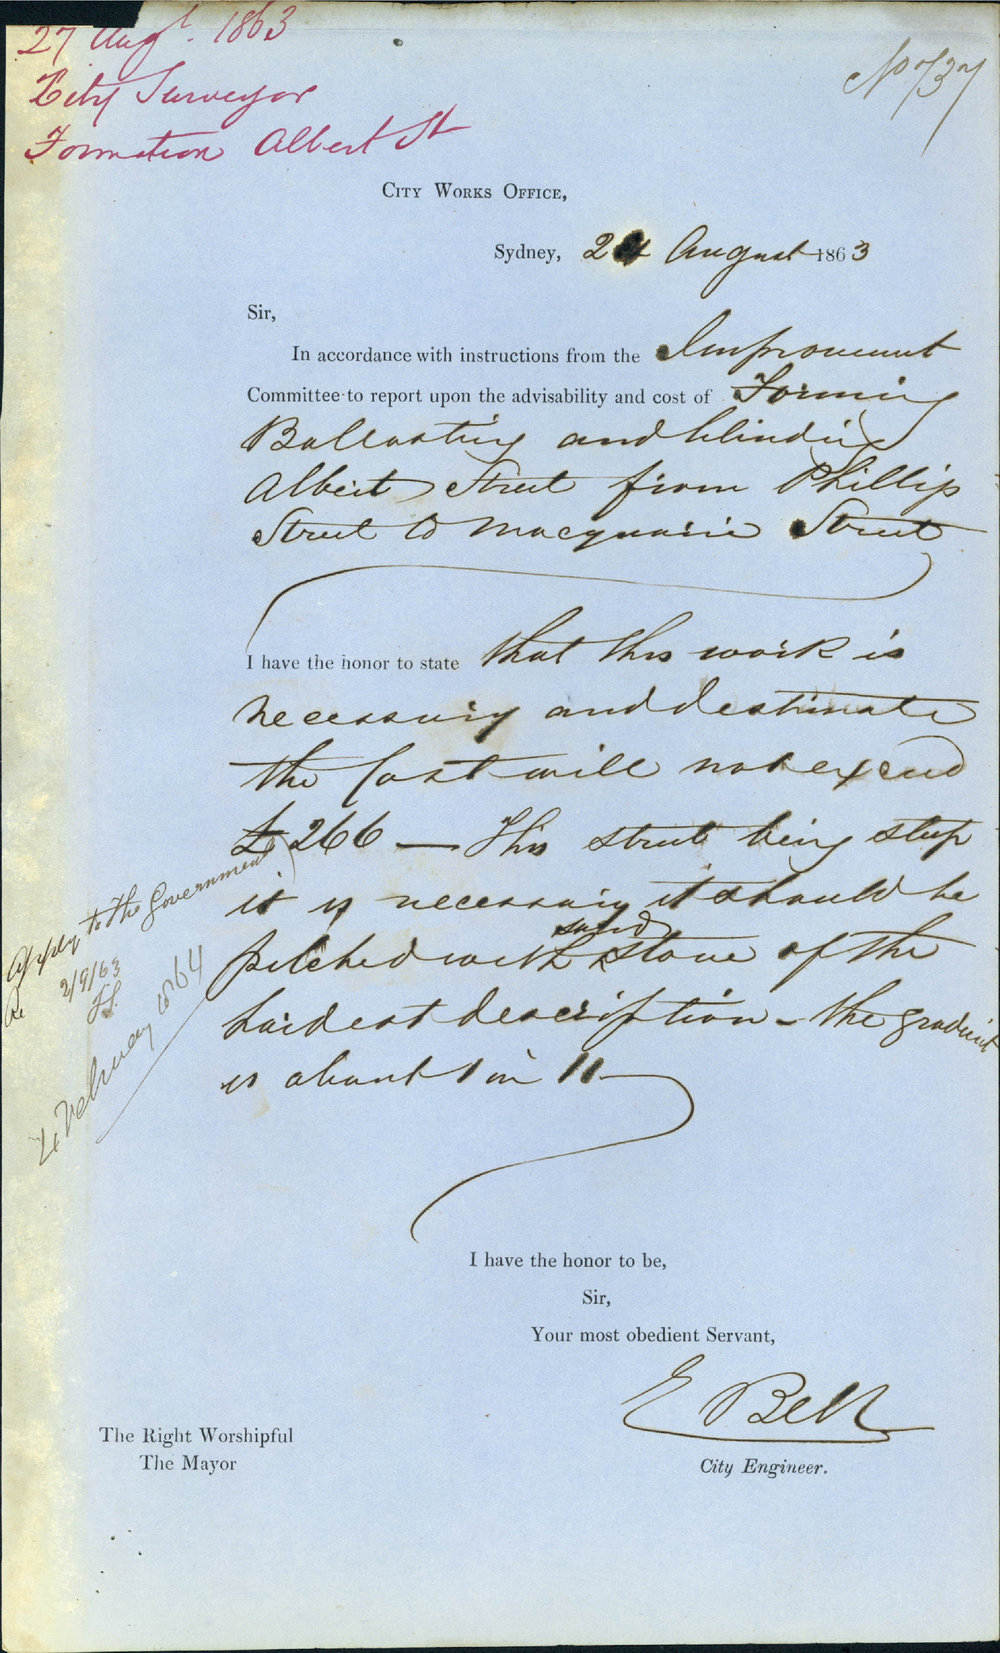 27 Augt. 1863
City Surveyor
Formation Albert St
No 737
City Works Office,
Sydney, 24 August 1863
Sir,
In accordance with instructions from the Improvement
Committee to report upon the advisability and cost of Forming
Ballasting and blinding
Albert Street from Phillip
Street to Macquarie Street
I have the honor to state that this work is
necessary and I estimate
the Cost will not exceed
£266 — This street being steep
it is necessary it should be
pitched with
stone of the
hardest description – the gradient
is about 1 in 11
Apply to the Government
2/9/63
4 February 1864
I have the honor to be,
Sir,
Your most obedient Servant,
E Bell
City Engineer.
The Right Worshipful
The Mayor